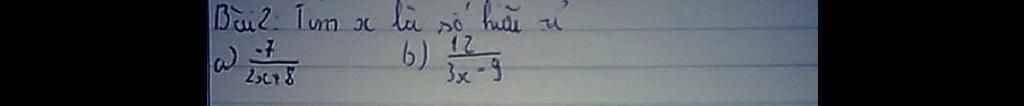 Bài 2. Tìm x là số hữu tỉ
a) -7/(2x+8) b) 12/(3x-9)